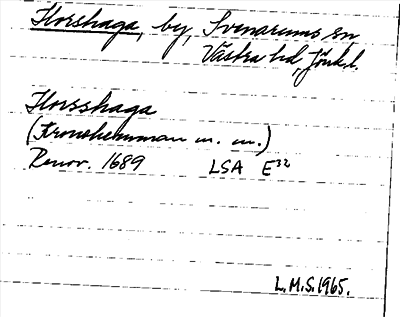 Horshaga, by, Svenarums sn,
Västra hd, Jönk. l.
Horsshaga
(Kronohemman m. m.)
Renov. 1689 LSA E32
L.M.S. 1965.